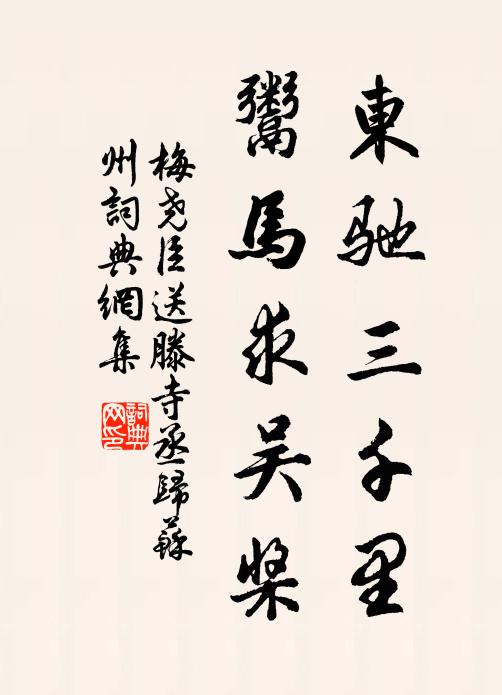 東馳三千里
鬻馬求吴槳
梅尧臣送滕寺丞歸蘇
州詞典網集
詞典网印